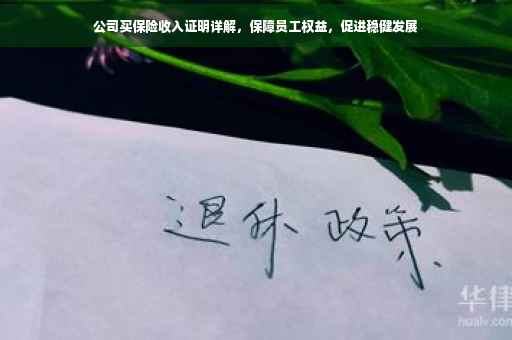 公司买保险收入证明详解，保障员工权益，促进稳健发展
退休政策
华律
hualv.com